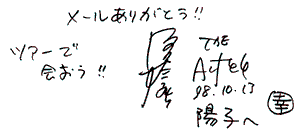 メールありがとう!!
ツアーで
会おう!!
THE
98.10.13
陽子へ
幸